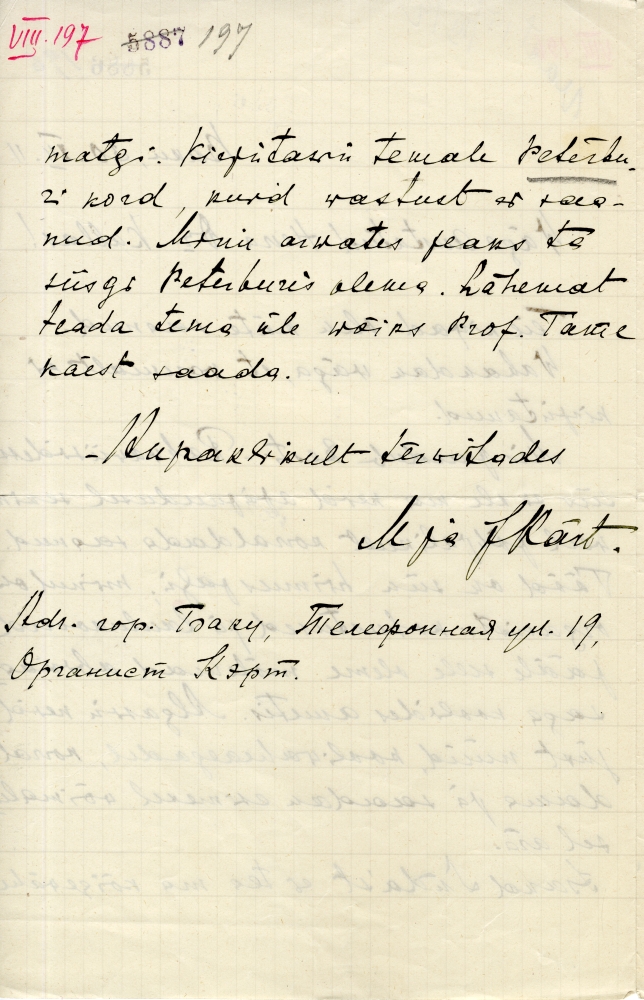 VIII. 197 5887 197
matgi. Kirjutasin temale Peterbu-
ri kord, kuid wastust ei saa-
nud. Minu arwates peaks ta
siisgi Peterburis olema. Lähemat
teada tema üle wõiks Prof. Tame
käest saada.
- Aupaklikult terwitades
M ja J Kärt.
Adr. гор. Баку, Телефонная ул. 19,
Органист Кэрт.